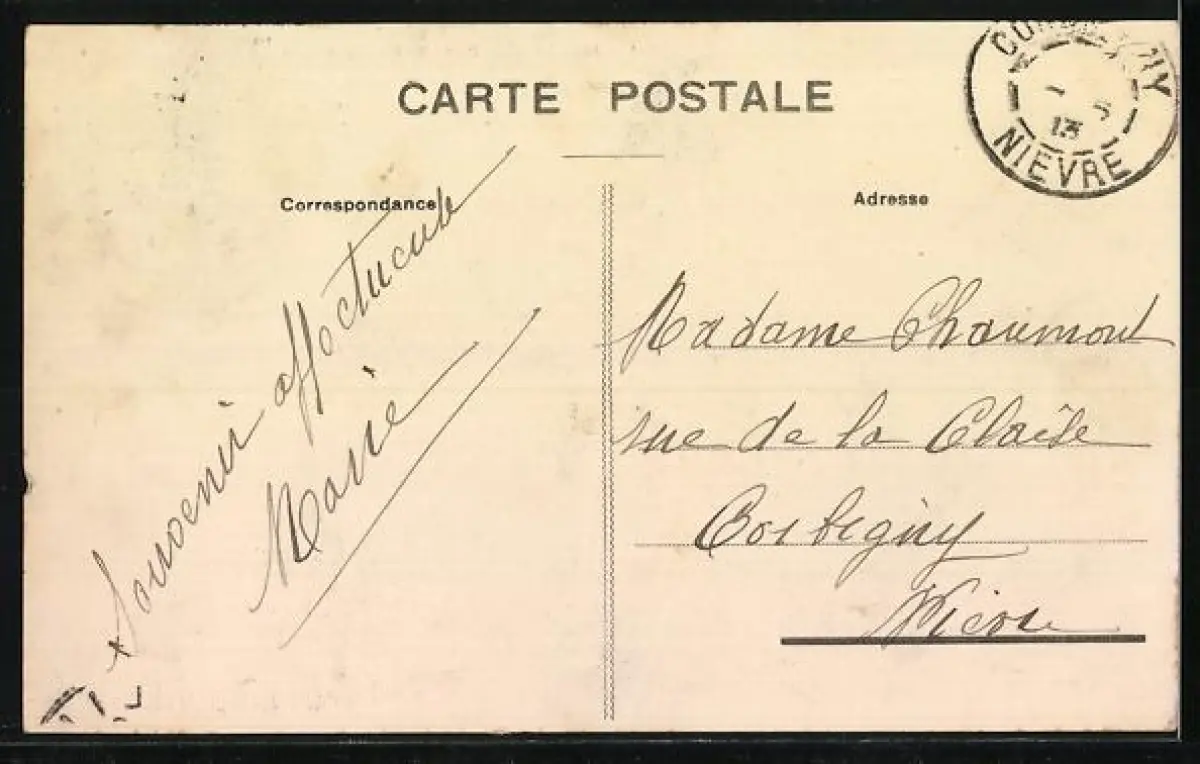 CARTE POSTALE
Correspondance
Souvenir affectueux
Marie
Adresse
Madame Chaumont
rue de la
Corbigny
Nièvre
NIEVRE
13